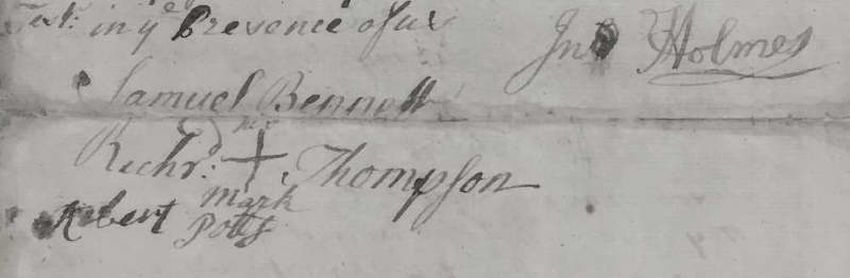 Test: in ye Presence of us
Jno Holmes
Samuel Bennett
his
Richr: + Thompson
mark
Robert Potts